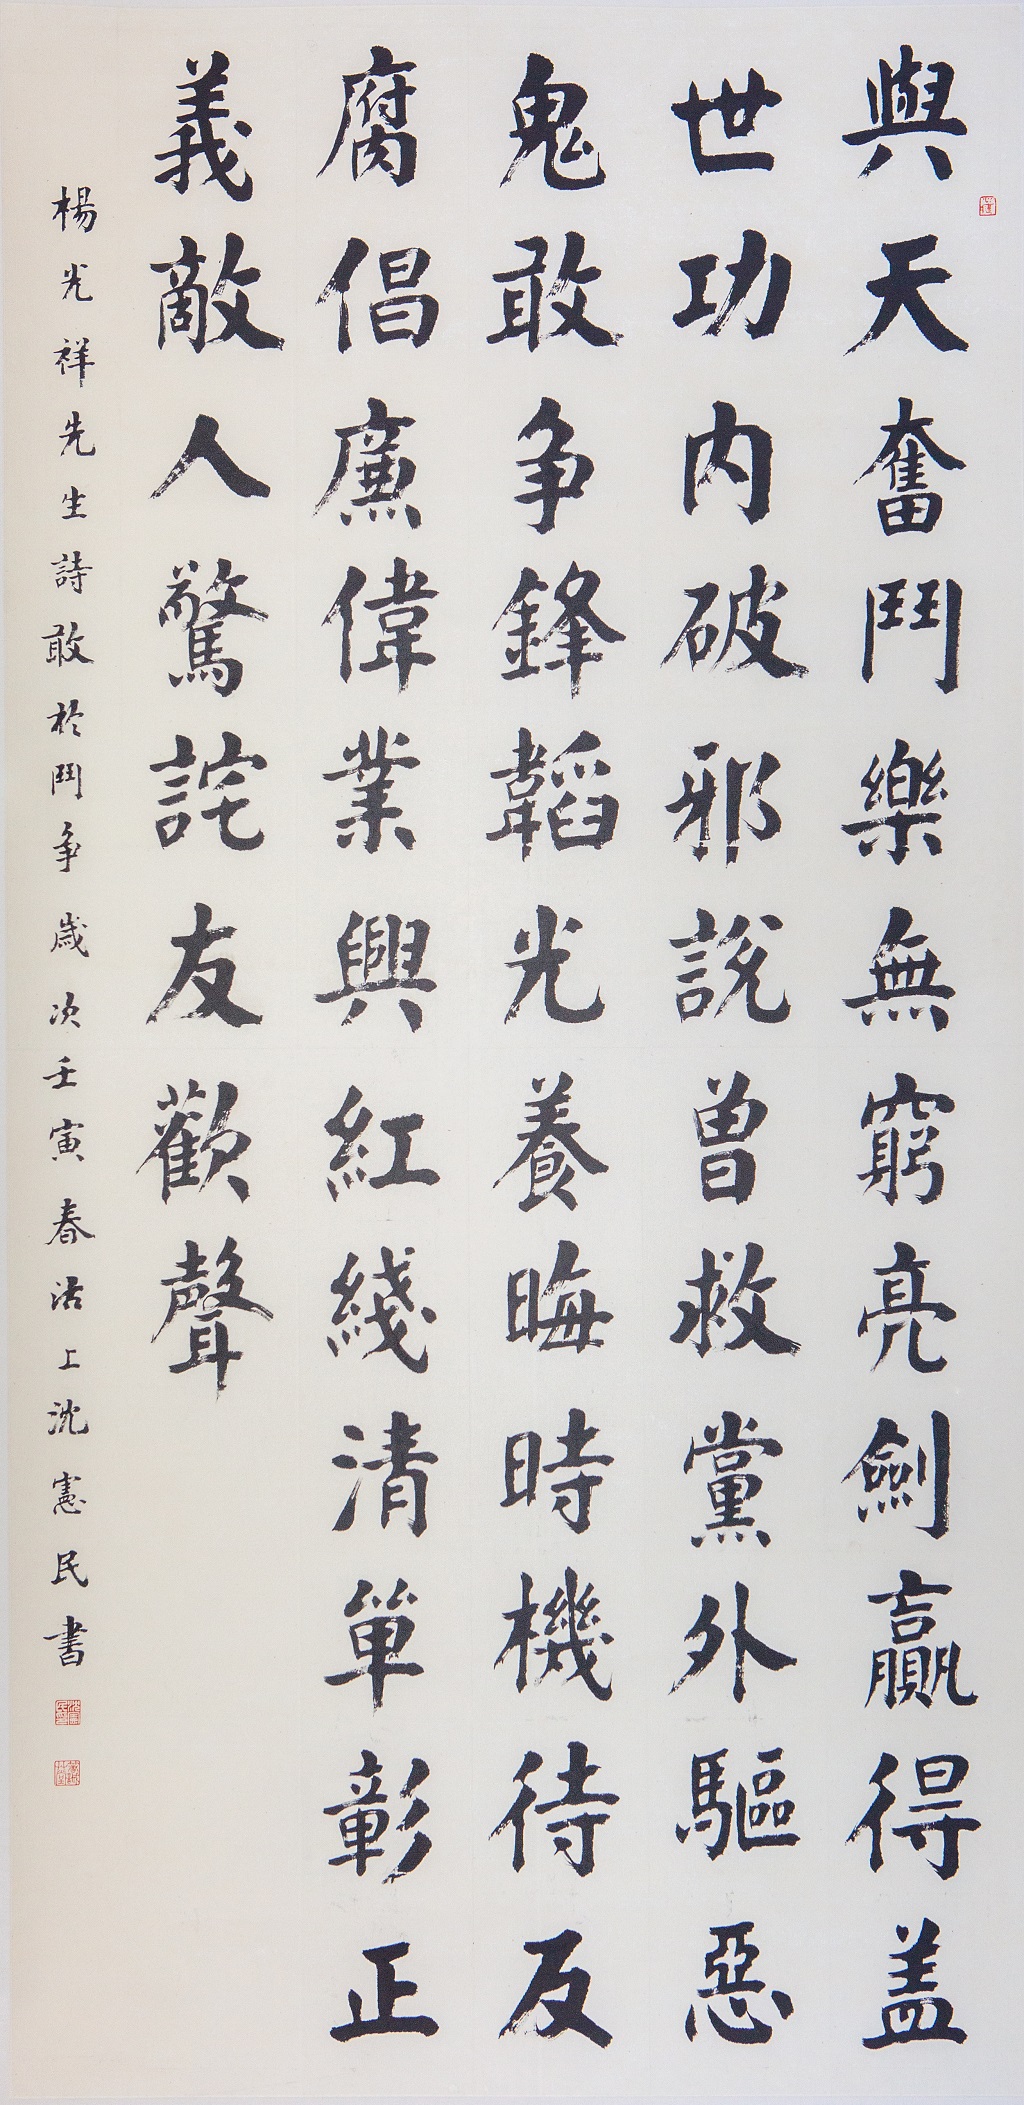 與天奮鬥樂無窮亮劍贏得盖
世功内破邪説曾救黨外驅惡
鬼敢争鋒韜光養晦時機待反
腐倡廉偉業興紅綫清單彰正
義敵人驚詫友歡聲
楊光祥先生詩敢於鬥争歲次壬寅春沽上沈憲民書